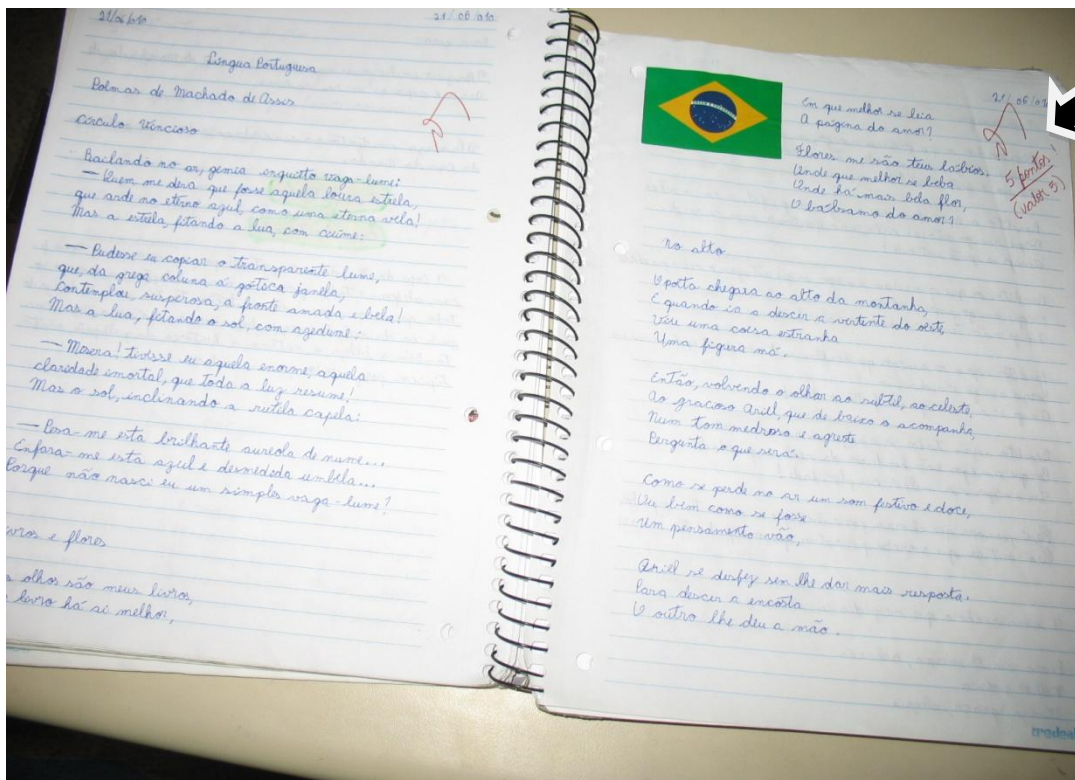 21/06/010
21/06/010
Língua Portuguesa
Polmas de Machado de Assis
Circulo Vincioso
Bailando no ar, gemia inquieto vaga-lume:
— Quem me dera que fosse aquela loura estrela,
que arde no eterno azul, como uma eterna vela!
Mas a estrela, fitando a lua, com ciúme:
— Pudesse eu copiar o transparente lume,
que, da grega coluna á gótica janela,
contemplou, suspirosa, a fronte amada e bela!
Mas a lua, fitando o sol, com azedume:
— Misera! tivesse eu aquela enorme, aquela
claridade imortal, que toda a luz resume!
Mas o sol, inclinando a rutila capela:
— Pesa-me esta brilhante auréola de nume...
Enfara-me esta azul e desmedida umbela...
Porque não nasci eu um simples vaga-lume?
ivros e flores
s olhos são meus livros,
e livro há ai melhor,
21/06/010
Em que melhor se leia
A página do amor?
Flores me são teus lábios.
Onde há mais bela flor,
Onde que melhor se beba
O bálsamo do amor?
5 pontos!
(valor 5)
No alto
O poeta chegara ao alto da montanha,
E quando ia a descer a vertente do oeste,
Viu uma coisa estranha
Uma figura má.
Então, volvendo o olhar ao subtil, ao celeste,
Ao gracioso Ariel, que de baixo o acompanha,
Num tom medroso e agreste
Pergunta o que será.
Como se perde no ar um som festivo e doce,
Ou bem como se fosse
Um pensamento vão,
Ariel se desfez sem lhe dar mais resposta.
Para descer a encosta
O outro lhe deu a mão.